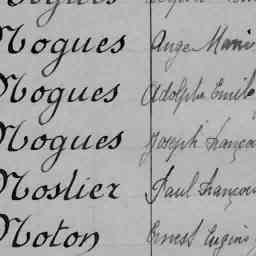 Nogues Ange Marie
Nogues Adolphe Emile
Nogues Joseph Françoi
Noslier Paul Françoi
Noton Ernest Eugène